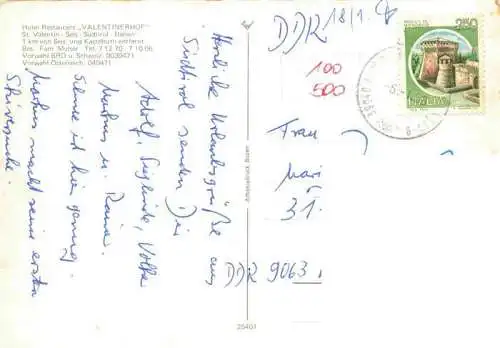 Hotel Restaurant „VALENTINERHOF"
St. Valentin - Seis - Südtirol - Italien
1 km von Seis und Kastelruth entfernt
Bes. Fam. Mutter Tel. 7 12 70 - 7 10 06
Vorwahl BRD u. Schweiz: 0039471
Vorwahl Österreich: 040471
Herzliche Urlaubsgrüße aus
Südtirol senden Dir
Adolf, Sieglinde, Volker
Markus u. Rainer.
Schnee ist hier genug.
Markus macht seine ersten
Skiversuche.
25401
DDR 18/1.
100
500
250
ITALIA
Frau
31.
DDR 9063